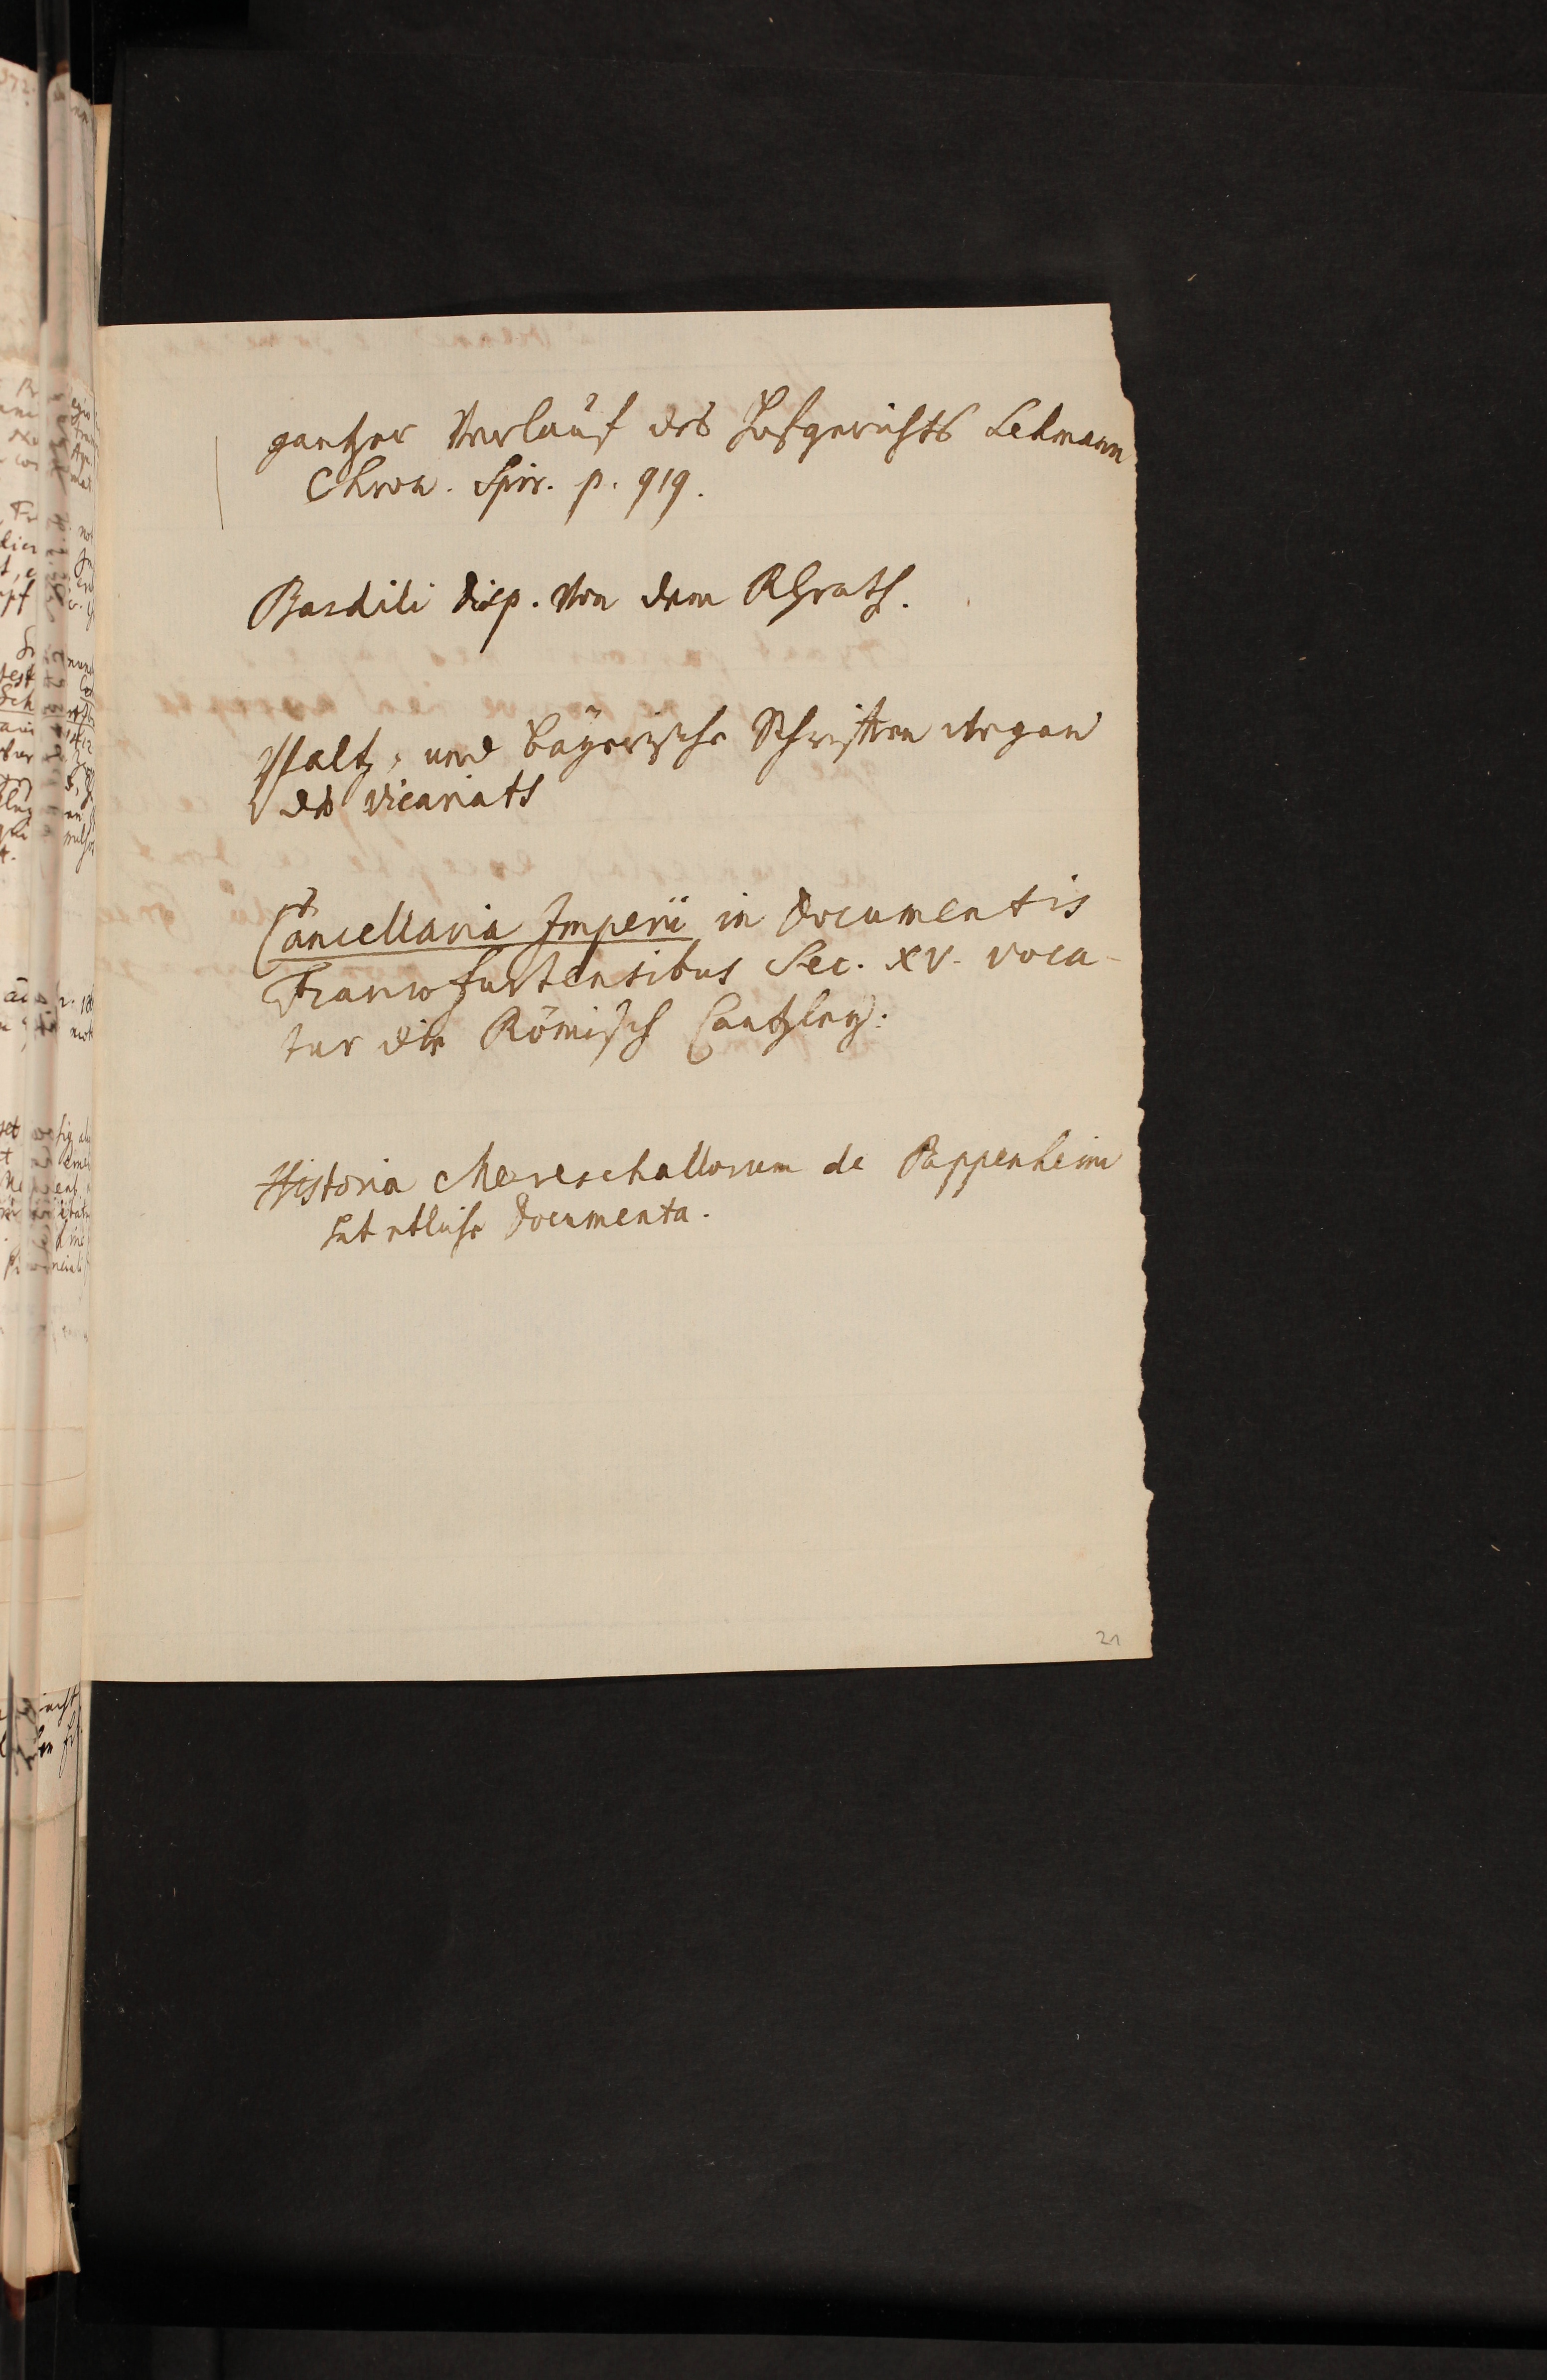 gantzer Verlauf des Hofgerichts Lehmann
Chron. Spir. p. 919.
Bardili disp. Von dem RHrath.
Pfaltz, und Bayerische Schriften wegen
des Vicariats
Cancellaria Imperii in Documentis
Francofurtensibus Sec. XV. voca-
tur die Römisch Cantzley.
Historia Mareschallorum de Pappenheim
hat etliche Documenta.
21